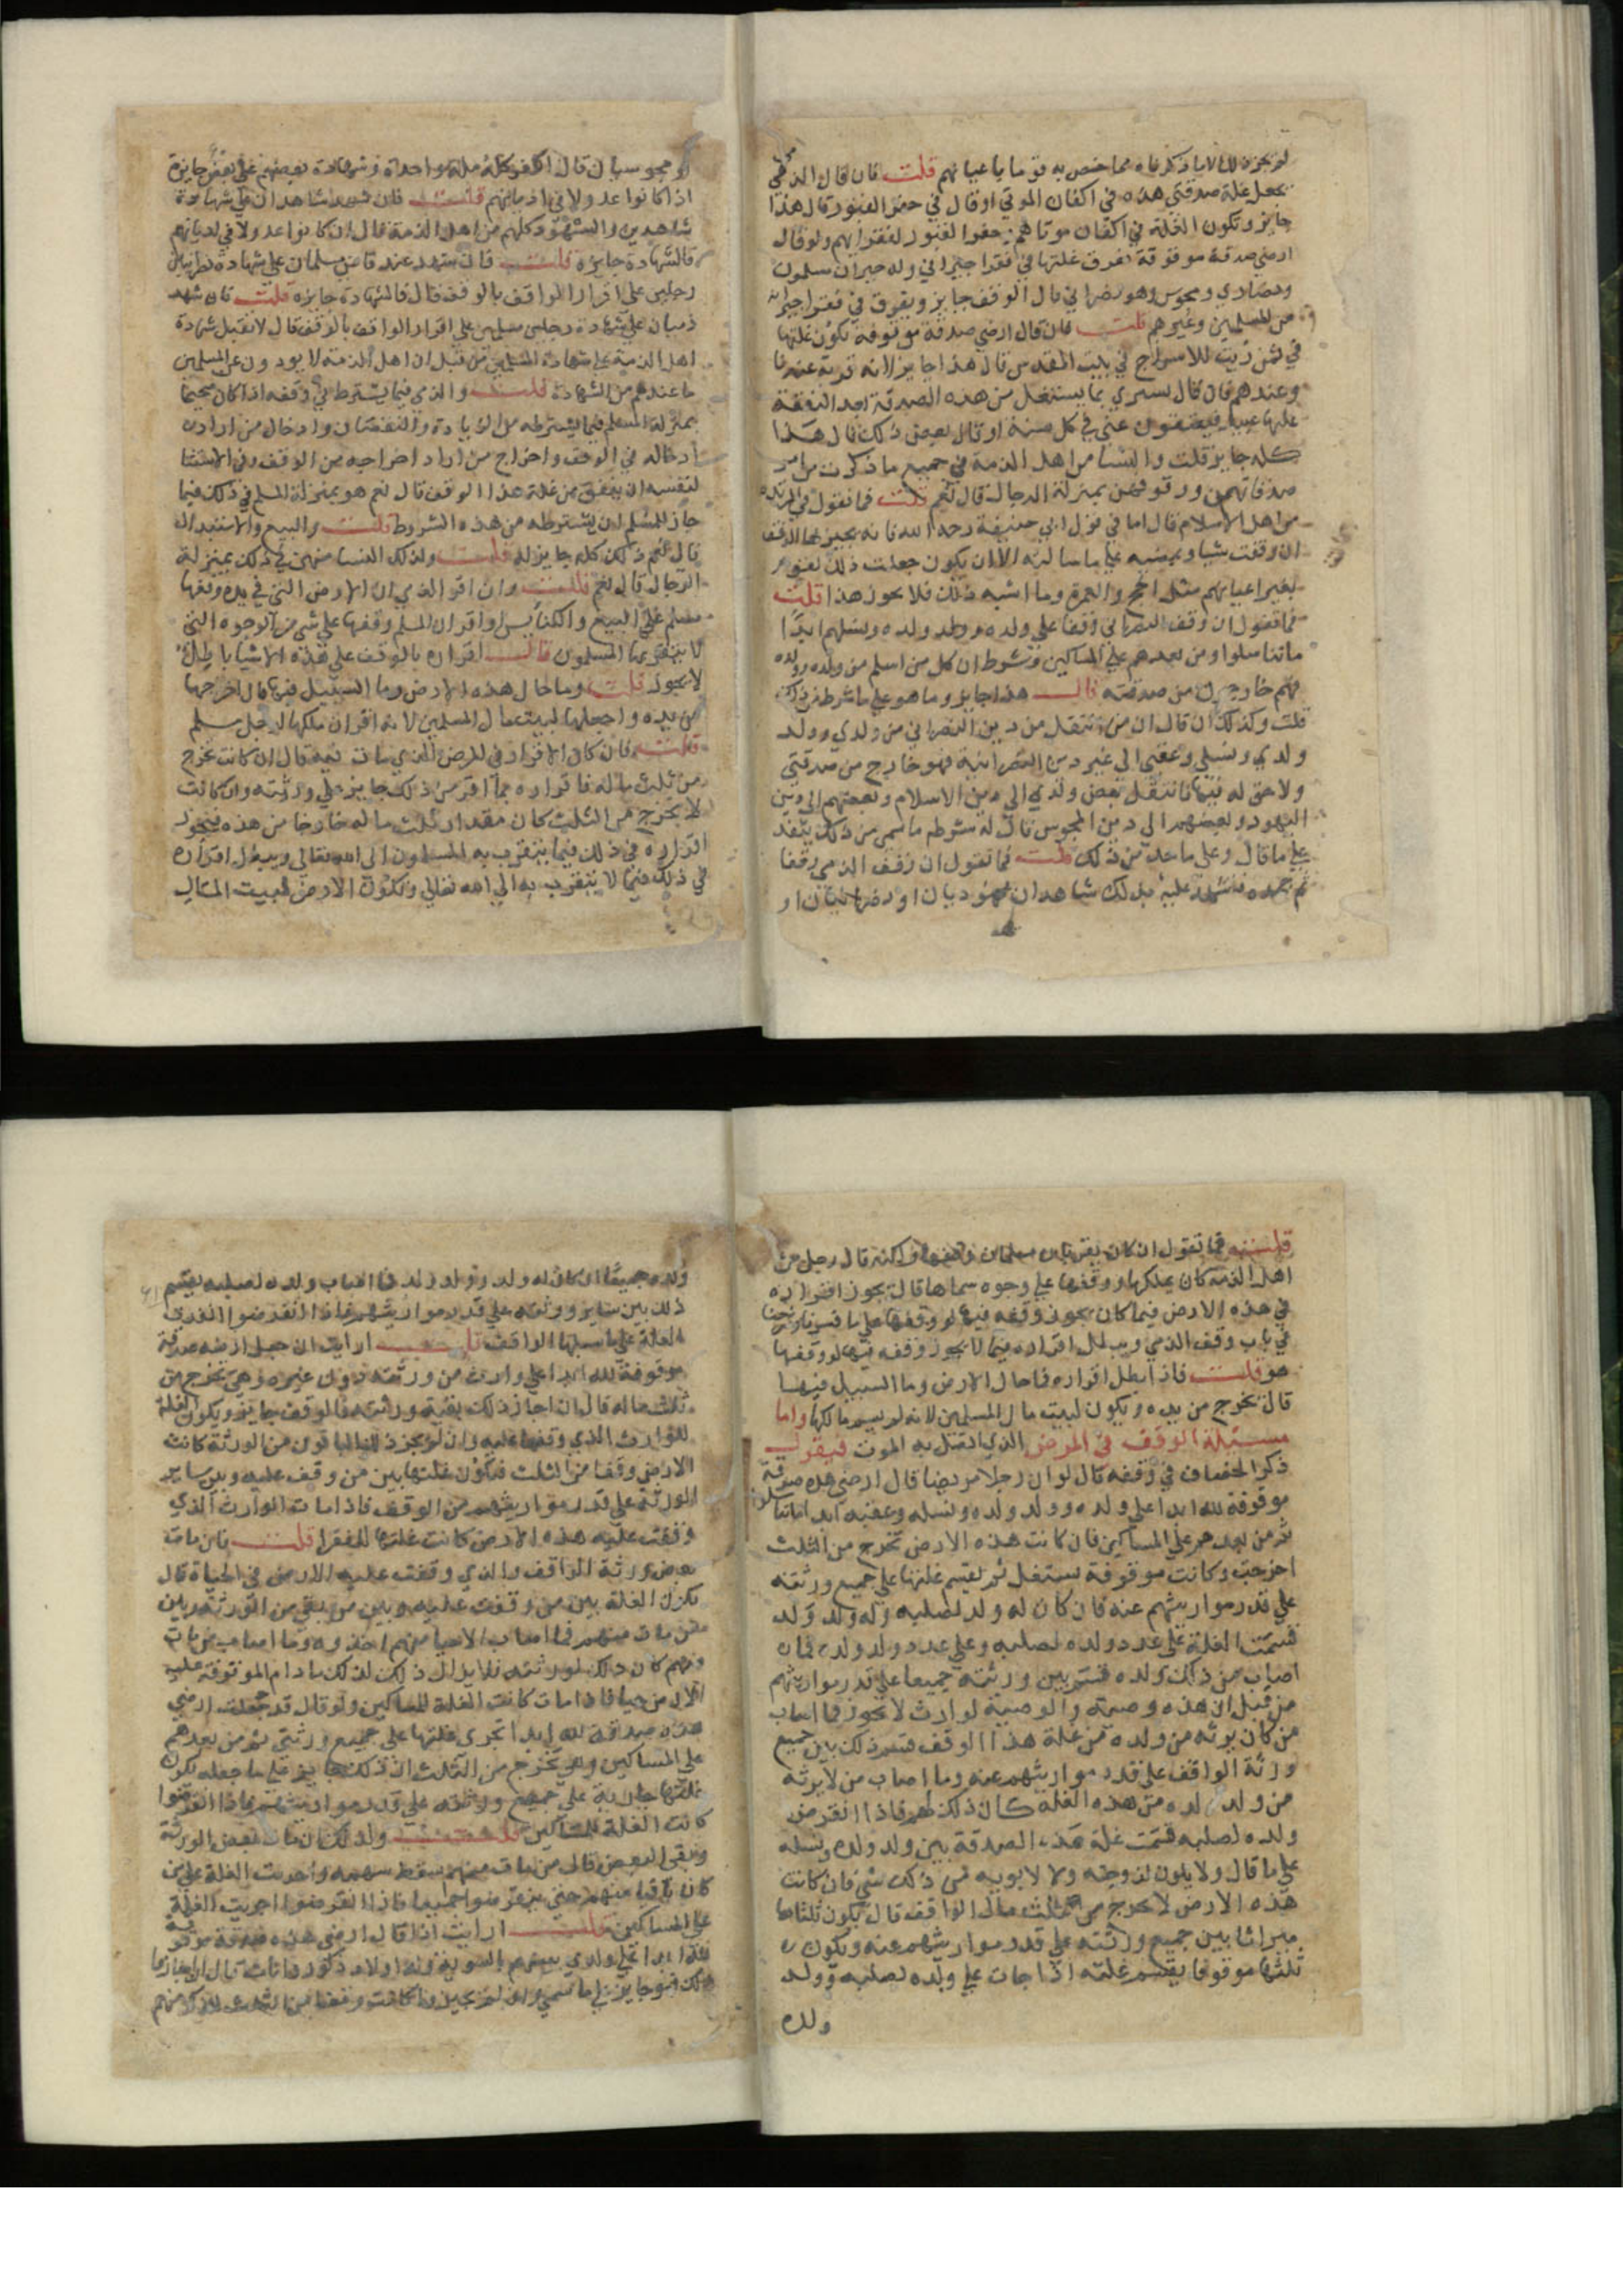 لم يجز ذلك الا ما ذكرناه مما خص به قوما باعيانهم قلت فان قال الذمي
يجعل غلة صدقتي هذه في اكفان الموتي او قال في حفر القبور قال هذا
جايز وتكون الغلة في اكفان موتاهم وحفر القبور لفقرايهم ولو قال
ارضي صدقة موقوفة تفرق غلتها في فقرا جيراني وله جيران مسلمون
ونصاري ومجوس وهو نصراني قال الوقف جايز ويفرق في فقرا جيرانه
من المسلمين وغيرهم قلت فان قال ارضي صدقة موقوفة تكون غلتها
في ثمن زيت للاسراج في بيت المقدس قال هذا جايز لانه قربة عندنا
وعندهم فان قال يشتري بما يستغل من هذه الصدقة بعد النفقة
عليها عبيد فيعتقون عني في كل سنة او قال بعض ذلك قال هذا
كله جايز قلت والنسا من اهل الذمة في جميع ما ذكرت من امر
صدقاتهن ووقوفهن بمنزلة الرجال قال نعم قلت فما تقول في المرتدة
من اهل الاسلام قال اما في قول ابي حنيفة رحمه الله فانه يجيز لها الوقف
ان وقفت شيا ويمضيه علي ما سالته الا ان يكون جعلت ذلك لقوم
بغير اعيانهم مثل الحج والعمرة وما اشبه ذلك فلا يجوز هذا قلت
فما تقول ان وقف النصراني وقفا علي ولده وولد ولده ونسلهم ابدا
ما تناسلوا ومن بعدهم علي المساكين وشرط ان كل من اسلم من ولده وولد ولده
فهم خارجون من صدقته قال هذا جايز وما هو علي ما شرط من ذلك
قلت وكذلك ان قال ان من انتقل من دين النصراني من ولدي وولد
ولدي ونسلي وعقبي الي غير دين النصرانية فهو خارج من صدقتي
ولا حق له فيها فانتقل بعض ولدي الي دين الاسلام وبعضهم الي دين
اليهود وبعضهم الي دين المجوس قال له شرطه ما سمي من ذلك ينفذ
علي ما قال وعلي ما حد من ذلك قلت فما تقول ان وقف الذمي وقفا
ثم جحده فشهد عليه بذلك شاهدان يهوديان او نصرانيان او
او مجوسيان قال الكفر كله ملة واحدة وشهادة بعضهم علي بعض جايزة
اذا كانوا عدولا في اديانهم قلت فان شهد شاهدان علي شهادة
شاهدين والشهود كلهم من اهل الذمة قال ان كانوا عدولا في اديانهم
فالشهادة جايزة قلت فان شهد عند قاضي مسلمان علي شهادة نصرانيين
رجلين علي اقرار الواقف بالوقف قال فالشهادة جايزة قلت فان شهد
ذميان علي شهادة رجلين مسلمين علي اقرار الواقف بالوقف قال لا تقبل شهادة
اهل الذمة علي شهادة المسلمين من قبل ان اهل الذمة لا يودون عن المسلمين
ما عندهم من الشهادة قلت والذمي فيما يشترط في وقفه اذا كان صحيحا
بمنزلة المسلم فيما يشترطه من الزيادة والنقصان وادخال من اراد
ادخاله في الوقف واخراج من اراد اخراجه من الوقف وفي الاستثنا
لنفسه ان ينفق من غلة هذا الوقف قال نعم هو بمنزلة المسلم في ذلك فيما
جاز للمسلم ان يشترطه من هذه الشروط قلت والبيع والاستبدال
قال نعم ذلك كله جايز له قلت وكذلك النسا منهن في ذلك بمنزلة
الرجال قال نعم قلت وان اقر الذمي ان الارض التي في يده وقفها
مسلم علي البيع والكنايس او اقر ان المسلم وقفها علي شي من الوجوه التي
لا يتقرب بها المسلمون قال اقراره بالوقف علي هذه الاشيا باطل
لا يجوز قلت وما حال هذه الارض وما السبيل فيها قال اخرجها
من يده واجعلها لبيت مال المسلمين لانه اقر ان ملكها لرجل مسلم
قلت فان كان الاقرار في المرض الذي مات فيه قال ان كانت تخرج
من ثلث ماله فاقراره بما اقر من ذلك جايز علي ورثته وان كانت
لا تخرج من الثلث كان مقدار ثلث ماله خارجا من هذه فيجوز
اقراره في ذلك فيما يتقرب به المسلمون الي الله تعالي ويبطل اقراره
في ذلك فيما لا يتقرب به الي الله تعالي وتكون الارض لبيت المال
قلت فما تقول ان كان يقر بان مسلما وقفها ولكنه قال رجل من
اهل الذمة كان يملكها ووقفها علي وجوه سماها قال يجوز اقراره
في هذه الارض فيما كان يجوز وقفه فيها لو وقفها علي ما فسرنا وشرحنا
في باب وقف الذمي ويبطل اقراره فيما لا يجوز وقفه فيها لو وقفها
هو قلت فاذا بطل اقراره فما حال الارض وما السبيل فيها
قال تخرج من يده وتكون لبيت مال المسلمين لانه لم يسم مالكها واما
مسئلة الوقف في المرض الذي اتصل به الموت فيقول
ذكر الخصاف في وقفه قال لو ان رجلا مريضا قال ارضي هذه صدقة
موقوفة لله ابدا علي ولده وولد ولده ونسله وعقبه ابدا ما تناسلوا
ثم من بعدهم علي المساكين فان كانت هذه الارض تخرج من الثلث
اخرجت وكانت موقوفة تستغل ثم تقسم غلتها علي جميع ورثته
علي قدر مواريثهم عنه فان كان له ولد لصلبه وله ولد ولد
قسمت الغلة علي عدد ولده لصلبه وعلي عدد ولد ولده فما
اصاب من ذلك ولده قسم بين ورثته جميعا علي قدر مواريثهم
من قبل ان هذه وصية والوصية لوارث لا تجوز فما اصاب
من كان يرثه من ولده من غلة هذا الوقف قسم ذلك بين جميع
ورثة الواقف علي قدر مواريثهم عنه وما اصاب من لا يرثه
من ولد ولده من هذه الغلة كان ذلك لهم فاذا انقرض
ولده لصلبه قسمت غلة هذه الصدقة بين ولد ولده ونسله
علي ما قال ولا يكون لزوجته ولا لابويه من ذلك شي فان كانت
هذه الارض لا تخرج من ثلث مال الواقف قال يكون ثلثاها
ميراثا بين جميع ورثته علي قدر مواريثهم عنه ويكون
ثلثها موقوفا يقسم غلته اذا جات علي ولده لصلبه وولد
ولده
ولده جميعا ان كان له ولد وولد ولد فما اصاب ولده لصلبه يقسم
ذلك بين ساير ورثته علي قدر مواريثهم فاذا انقرضوا انفذت
الغلة علي ما سبلها الواقف قلت ارايت ان جعل ارضه صدقة
موقوفة لله ابدا علي وارث من ورثته دون غيره وهي تخرج من
ثلث ماله قال ان اجاز ذلك بقية ورثته فالوقف جايز ويكون الغلة
للوارث الذي وقفها عليه وان لم يجز ذلك الباقون من الورثة كانت
الارض وقفا من الثلث فتكون غلتها بين من وقف عليه وبين ساير
الورثة علي قدر مواريثهم من الواقف فاذا مات الوارث الذي
وقفت عليه هذه الارض كانت غلتها للفقرا قلت فان مات
بعض ورثة الواقف والذي وقفت عليه الارض في الحياة قال
تكون الغلة بين من وقفت عليه وبين من بقي من الورثة وبين
من مات منهم فما اصاب الاحيا منهم اخذوه وما اصاب من مات
منهم كان ذلك لورثته فلا يزال ذلك كذلك ما دام الموقوفة عليه
الارض حيا فاذا مات كانت الغلة للمساكين ولو قال قد جعلت ارضي
هذه صدقة لله ابدا تجري غلتها علي جميع ورثتي ثم من بعدهم
علي المساكين وهي تخرج من الثلث ان ذلك جايز علي ما جعله تكون
غلتها جارية علي جميع ورثته علي قدر مواريثهم فاذا انقرضوا
كانت الغلة للمساكين قلت وكذلك ان مات بعض الورثة
وبقي البعض قال من مات منهم سقط سهمه واجريت الغلة علي من
كان باقيا منهم حتي ينقرضوا جميعا فاذا انقرضوا اجريت الغلة
علي المساكين قلت ارايت اذا قال ارضي هذه صدقة موقوفة
لله ابدا علي ولدي بينهم بالسوية وله اولاد ذكور واناث قال ان اجازوا
ذلك فهو جايز علي ما سمي وان لم يجيزوا كانت وقفا بينهم للذكر منهم